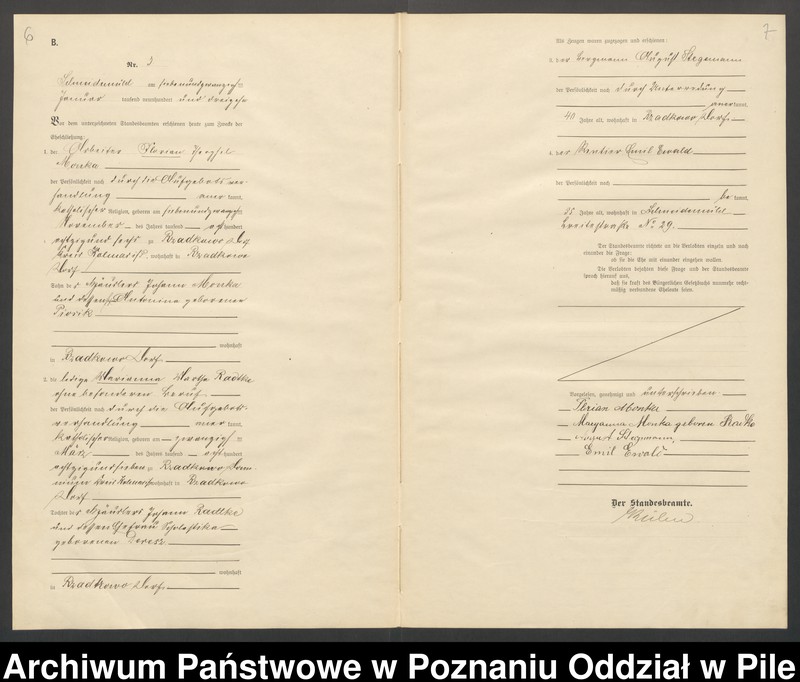 6
B.
Nr. 3
Schneidemühl am siebenundzwanzigsten
Januar tausend neunhundert und dreizehn
Vor dem unterzeichneten Standesbeamten erschienen heute zum Zwecke der
Eheschließung:
1. der Arbeiter Florian Joseph
Monka
der Persönlichkeit nach durch die Aufgebotsver-
handlung anerkannt,
katholischer Religion, geboren am siebenundzwanzigsten
November des Jahres tausend acht hundert
achtzig und sechs zu Bradkowo Dorf
Kreis Kolmar, wohnhaft in Bradkowo
Dorf
Sohn des Häuslers Johann Monka
und dessen Antonina geborener
wohnhaft
in Bradkowo Dorf
2. die ledige Marianna Martha Radtke
ohne besonderen Beruf
der Persönlichkeit nach durch die Aufgebots-
verhandlung anerkannt,
katholischer Religion, geboren am zwanzigsten
März des Jahres tausend acht hundert
achtzig und sieben zu Bradkowo
Kreis Kolmar, wohnhaft in Bradkowo
Dorf
Tochter des Häuslers Johann Radtke
und dessen Ehefrau Scholastika
geborenen
wohnhaft
in Bradkowo Dorf
7
Als Zeugen waren zugezogen und erschienen:
3. der Bergmann August Stegemann
der Persönlichkeit nach durch Unterredung
anerkannt,
40 Jahre alt, wohnhaft in Bradkowo Dorf
4. der Rentier Emil Ewald
der Persönlichkeit nach
bekannt,
55 Jahre alt, wohnhaft in Schneidemühl
Breitestraße No 29.
Der Standesbeamte richtete an die Verlobten einzeln und nach
einander die Frage:
ob sie die Ehe mit einander eingehen wollen.
Die Verlobten bejahten diese Frage und der Standesbeamte
sprach hierauf aus,
daß sie kraft des Bürgerlichen Gesetzbuchs nunmehr recht-
mäßig verbundene Eheleute seien.
Vorgelesen, genehmigt und unterschrieben
Florian Monka
Maryanna Monka geboren Radtke
August Stegemann,
Emil Ewald
Der Standesbeamte.
Archiwum Państwowe w Poznaniu Oddział w Pile